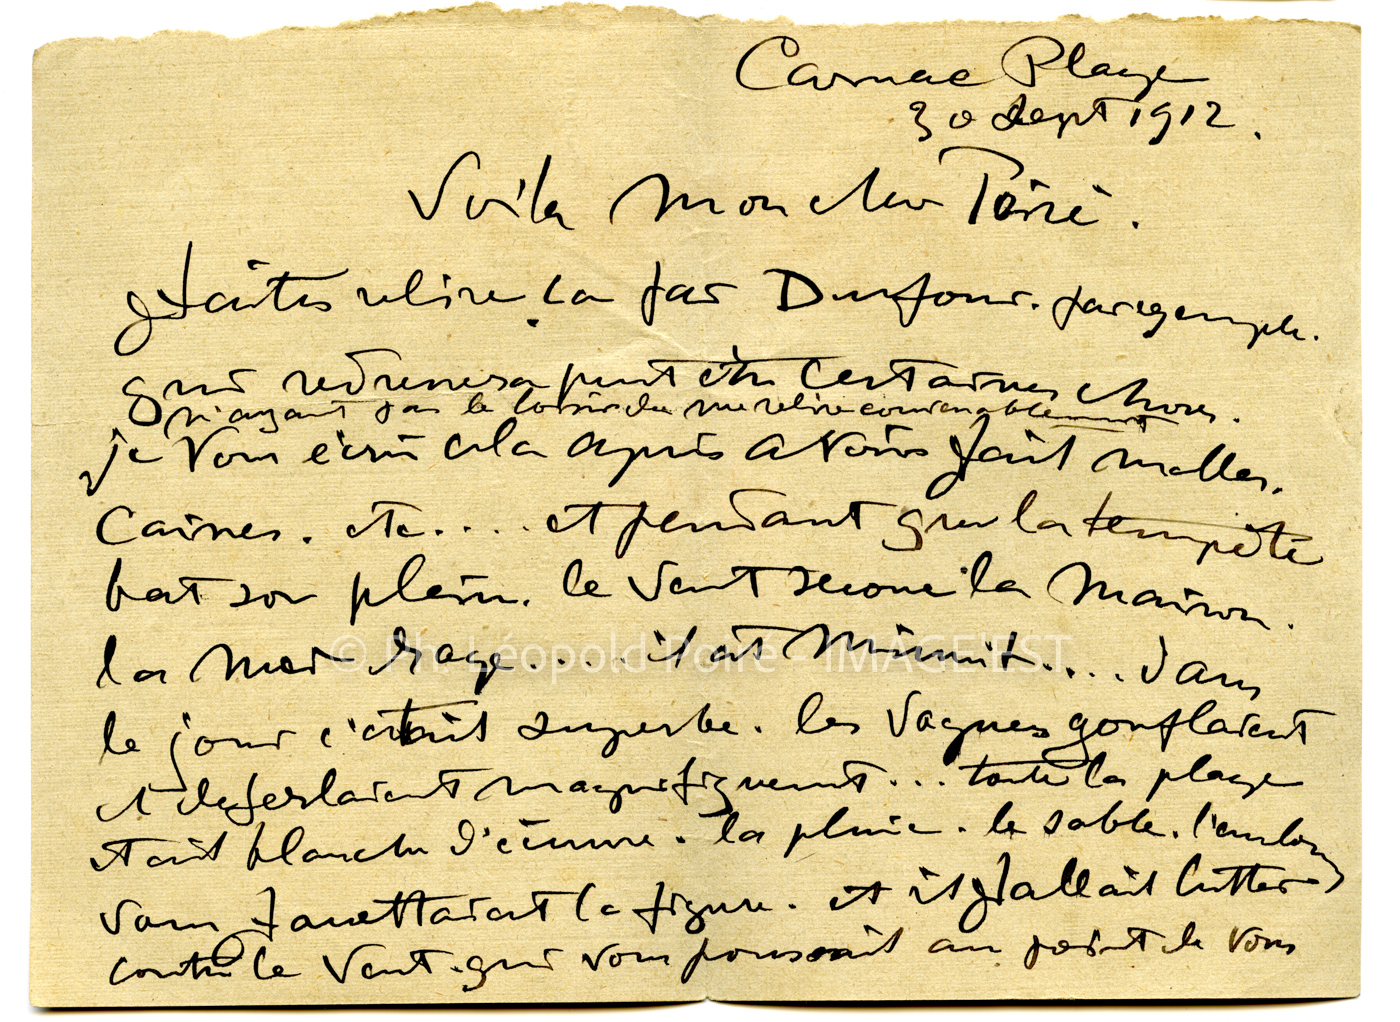 Carnac Plage
30 Sept 1912.
Voila mon cher Poiré.
faites relire ça par Dufour. par exemple.
qui redressera peut etre certaines choses.
n'ayant pas le loisir de me relire convenablement
je vous écris cela après avoir fait malles.
Caisses. etc.... et pendant que la tempête
bat son plein. le vent secoue la maison.
la mer rage.... il est minuit.... dans
le jour c'était superbe. les vagues gonflaient
et deferlaient magnifiquement... toute la plage
etait blanche d'écume. la pluie. le sable. l'embrun
vous fouettaient la figure. et il fallait lutter
contre le vent. qui vous poussait au point de vous
© Ph. Léopold Poiré - IMAGE'EST